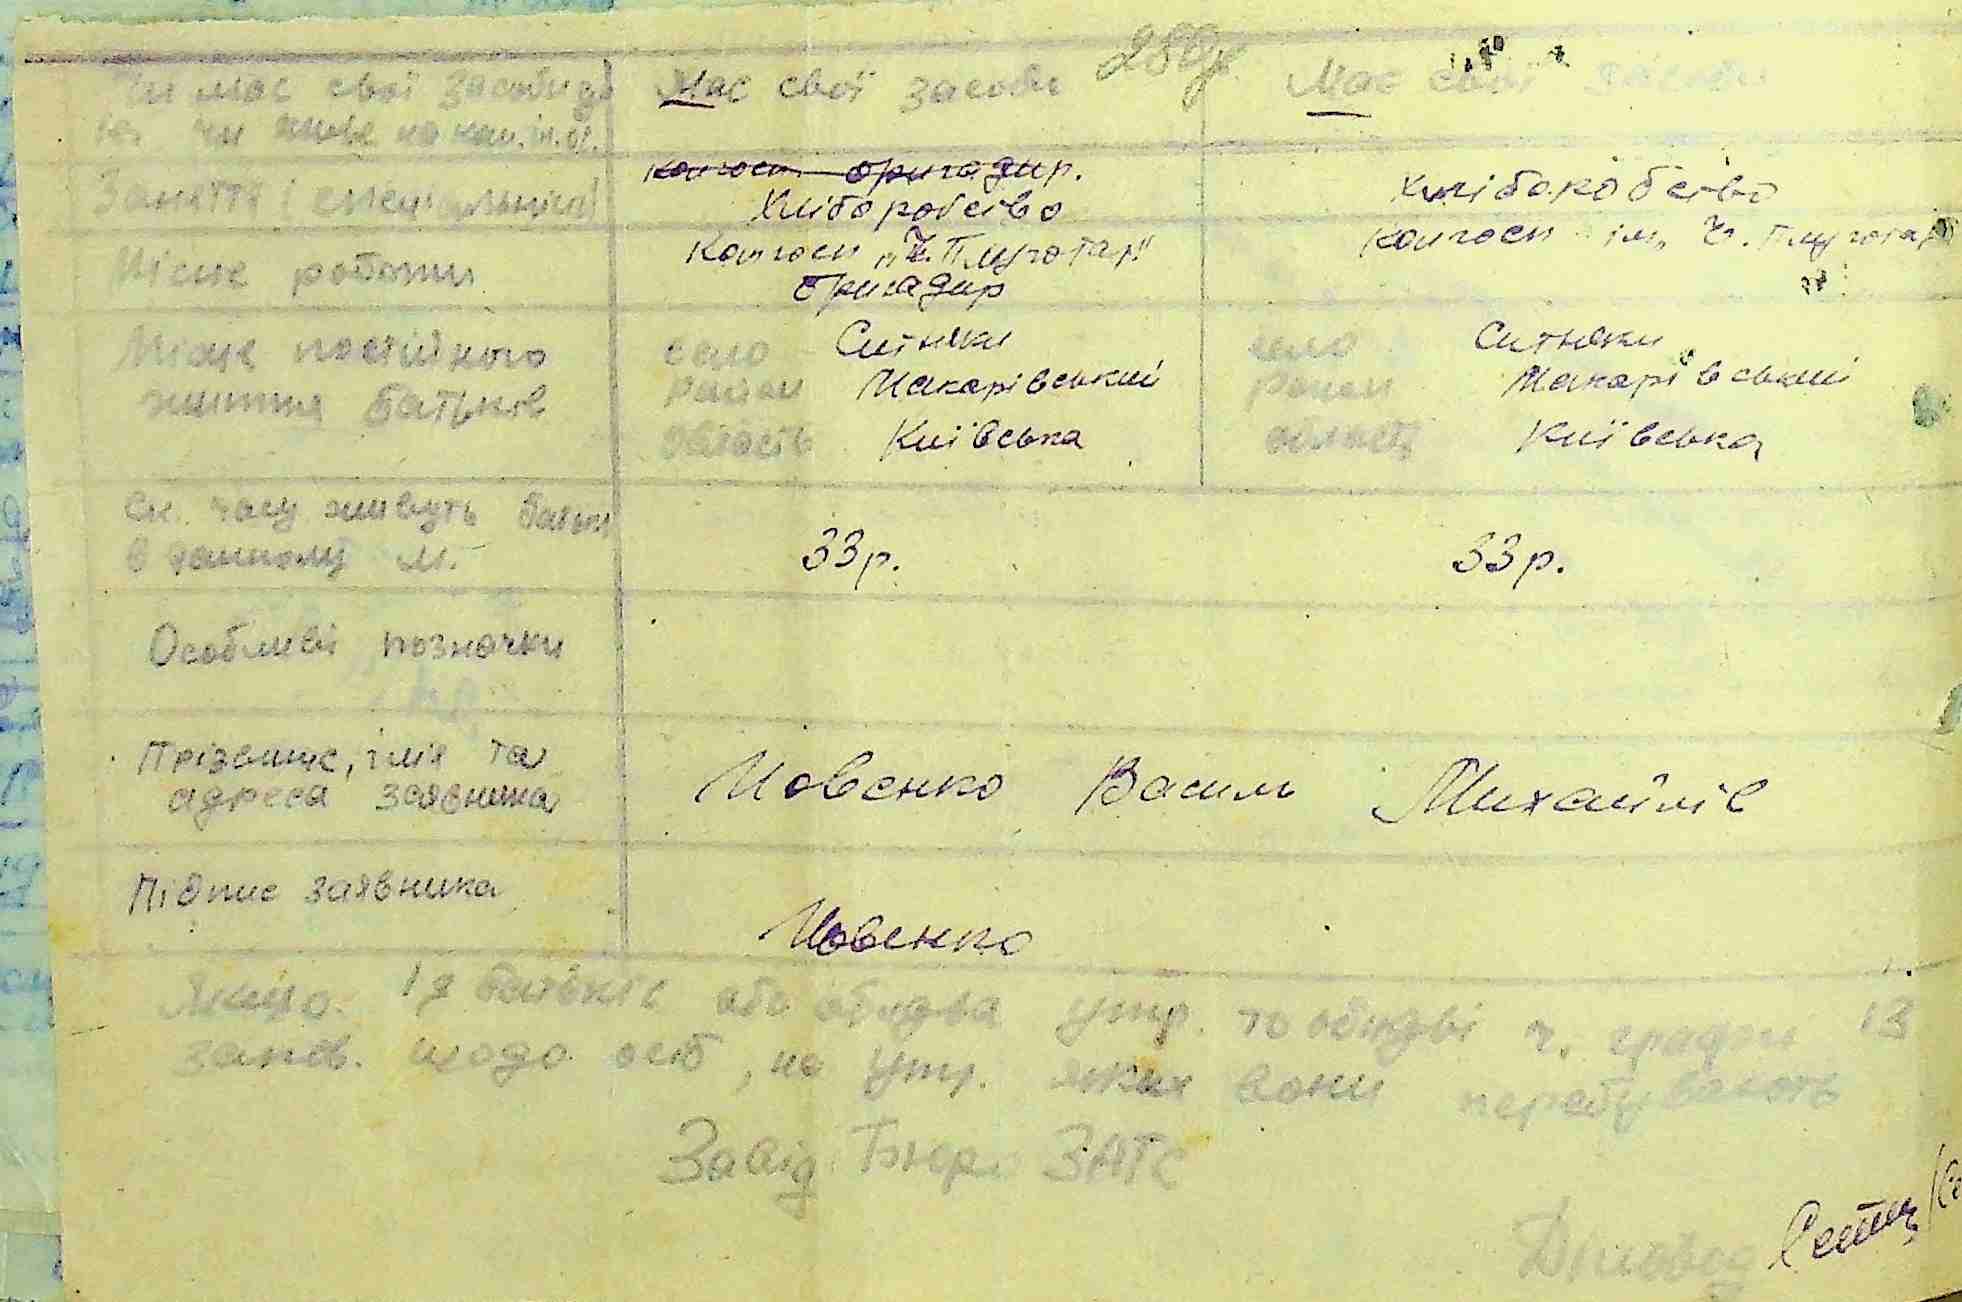 289
Чи має свої засоби Має свої засоби Має свої засоби
чи живе на
колгосп бригадир.
Заняття і спеціальність Хліборобство хліборобство
Місце роботи Колгосп „Ч. Плугатар" колгосп ім. Ч. Плугатар
бригадир
Місце постійного село Ситняки село Ситняки
життя батьків Район Макарівський Район Макарівський
область Київська область Київська
Ск. часу живуть батьки
в данному м. 33 р. 33 р.
Особливі позначки
Прізвище, ім'я та
адреса заявника Йовенко Василь Михайлів
Підпис заявника
Йовенко
Якщо 1 з батьків або обидва утр. то обидві ч. графи 13
запов. щодо осіб, на утр. яких вони перебувають
Завід. Бюр. ЗАГС
Діловод